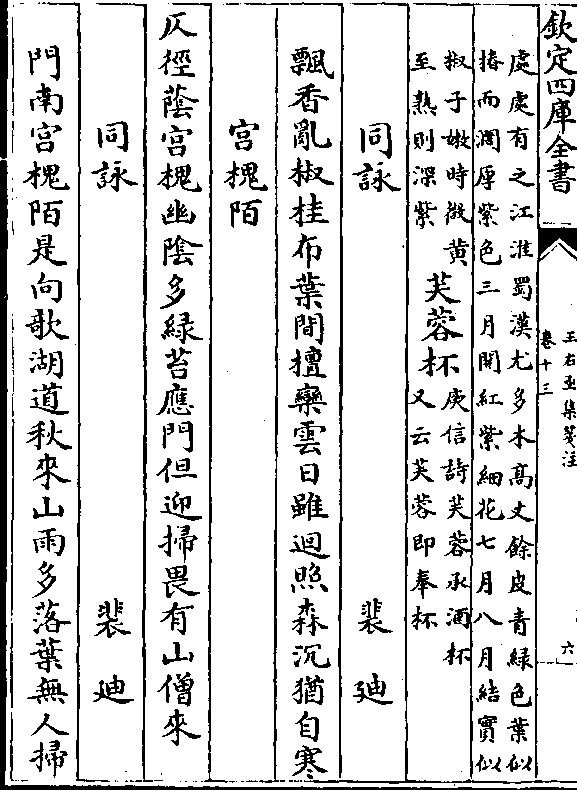 欽定四庫全書
王右丞集箋注
卷十三
六
處處有之江淮蜀漢尤多木高丈餘皮青緑色葉似
椿而濶厚紫色三月開紅紫細花七月八月結實似
椒子嫩時微黄
至熟則深紫
芙蓉杯
庾信詩芙蓉承酒杯
又云芙蓉即奉杯
同詠 裴廸
飄香亂椒桂布葉間檀欒雲日雖迴照森沉猶自寒
宫槐陌
仄徑䕃宫槐幽陰多緑苔應門但迎掃畏有山僧來
同詠 裴廸
門南宫槐陌是向歌湖道秋來山雨多落葉無人掃